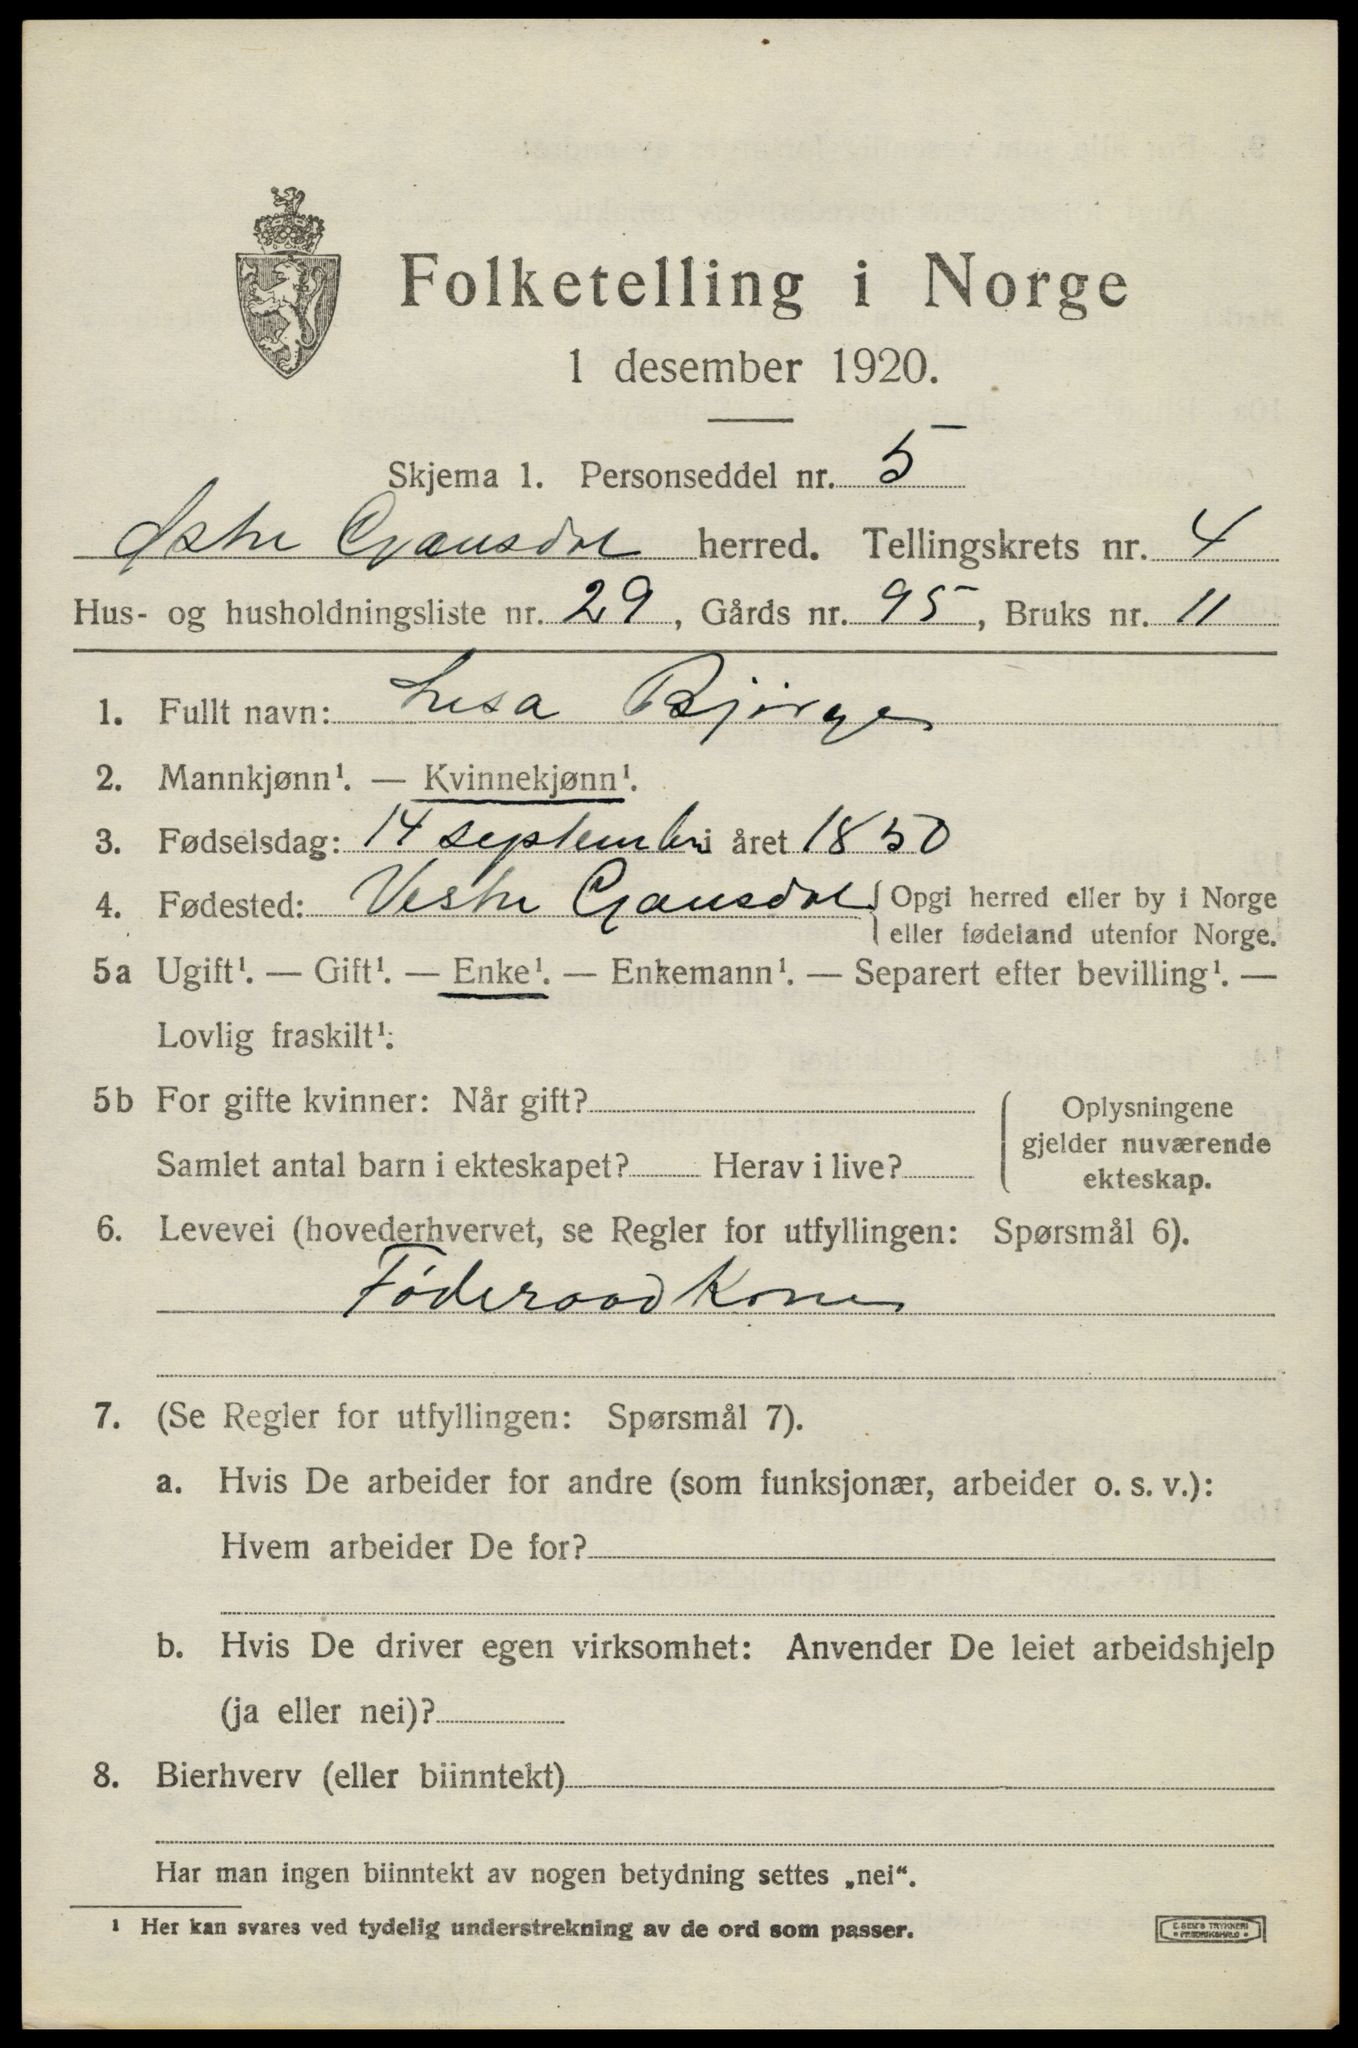 Folketelling i Norge
1 desember 1920.
Skjema 1. Personseddel nr. 5
Østre Gausdal herred. Tellingskrets nr. 4
Hus- og husholdningsliste nr. 29, Gårds nr. 95, Bruks nr. 11
1. Fullt navn: Lisa Bjørge
2. Mannkjønn¹. — Kvinnekjønn¹.
3. Fødselsdag: 14 september i året 1850
4. Fødested: Vestre Gausdal { Opgi herred eller by i Norge
eller fødeland utenfor Norge.
5a Ugift¹. — Gift¹. — Enke¹. — Enkemann¹. — Separert efter bevilling¹. —
Lovlig fraskilt¹.
5b For gifte kvinner: Når gift? { Oplysningene
gjelder nuværende
Samlet antal barn i ekteskapet? Herav i live? ekteskap.
6. Levevei (hovederhvervet, se Regler for utfyllingen: Spørsmål 6).
Føderaad Kone
7. (Se Regler for utfyllingen: Spørsmål 7).
a. Hvis De arbeider for andre (som funksjonær, arbeider o. s. v.):
Hvem arbeider De for?
b. Hvis De driver egen virksomhet: Anvender De leiet arbeidshjelp
(ja eller nei)?
8. Bierhverv (eller biinntekt)
Har man ingen biinntekt av nogen betydning settes „nei“.
¹ Her kan svares ved tydelig understrekning av de ord som passer.
E. SEM'S TRYKKERI
FREDRIKSHALD